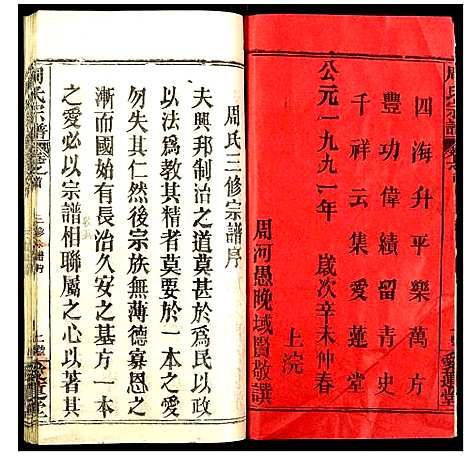 周氏宗譜
四海升平樂萬方
豐功偉績留青史
千祥云集愛蓮堂
公元一九九一年
歲次辛未仲春
上浣
周河愚晚域賢敬譔
愛蓮堂
周氏三修宗譜序
夫興邦制治之道莫甚於為民以政
以法為教其精者莫要於一本之愛
勿失其仁然後宗族無薄德寡恩之
漸而國始有長治久安之基方一本
之愛必以宗譜相聯屬之心以著其
周氏宗譜
卷之首